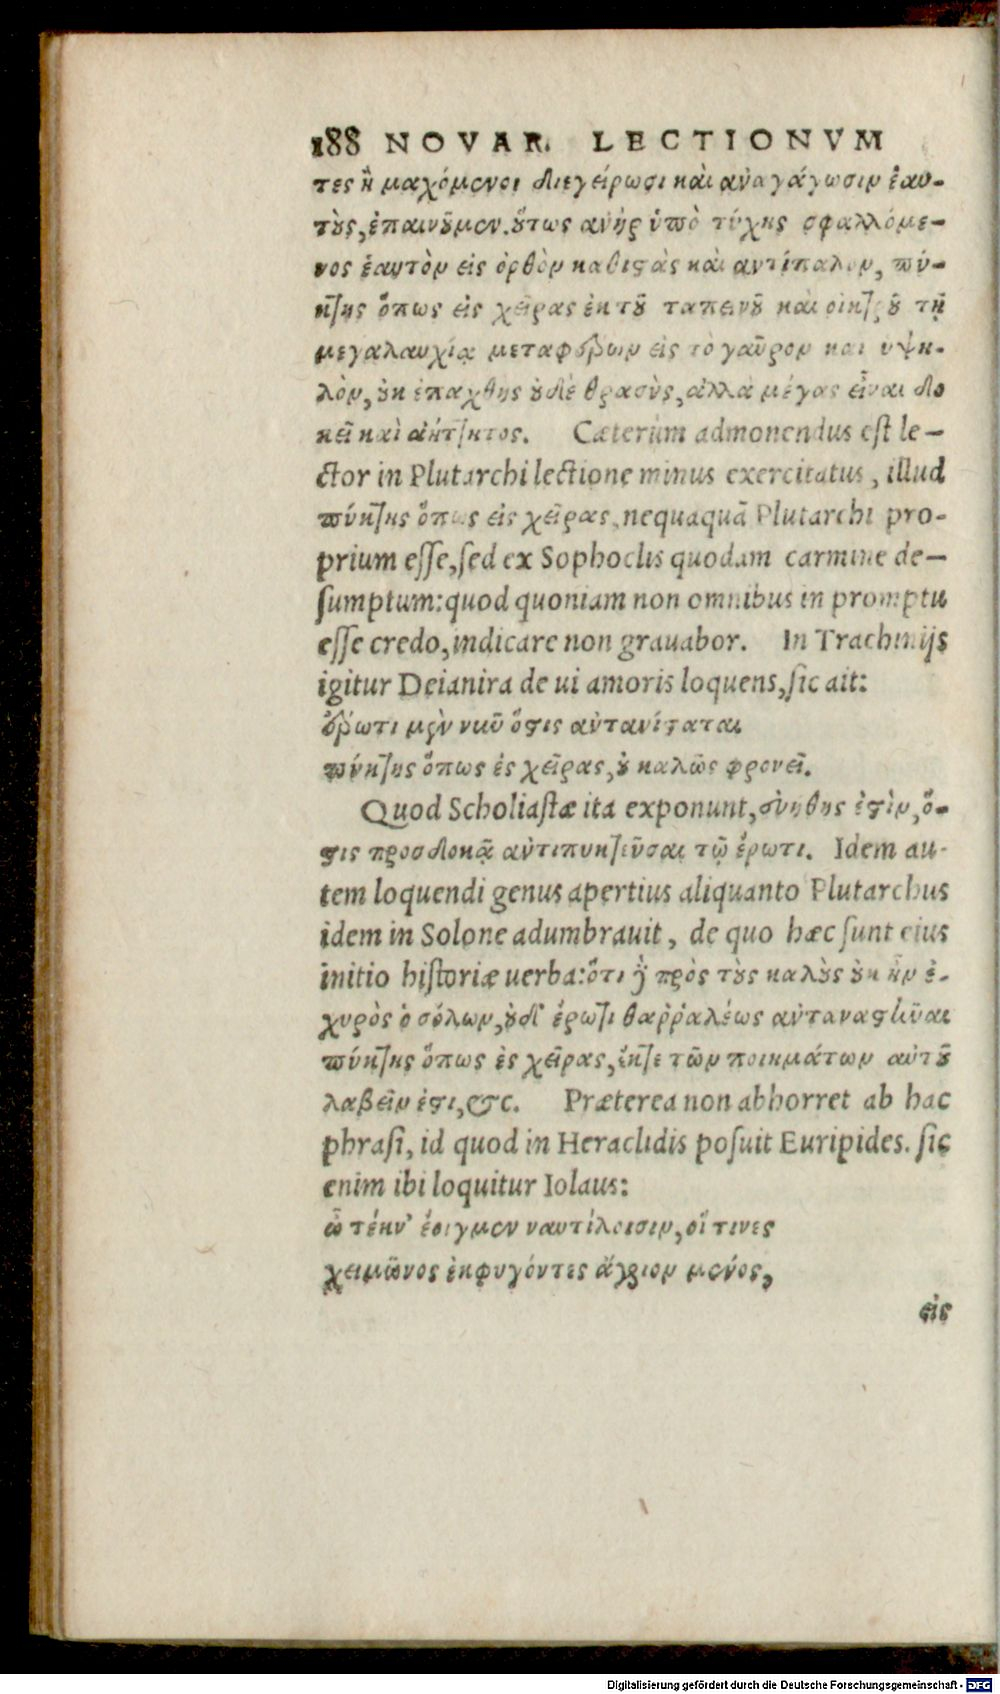 188 NOVAR. LECTIONVM
τες ἢ μαχόμενοι διεγείρωσι καὶ ἀναγάγωσιν ἑαυ-
τοὺς, ἐπαινοῦμεν. οὕτως ἀνὴρ ὑπὸ τύχης σφαλλόμε-
νος ἑαυτὸν εἰς ὀρθὸν καθιστὰς καὶ ἀντίπαλον, πύ-
κτης ὅπως εἰς χεῖρας ἐκ τοῦ ταπεινοῦ καὶ οἰκτροῦ τῇ
μεγαλαυχίᾳ μεταφέρων εἰς τὸ γαῦρον καὶ ὑψη-
λὸν, οὐκ ἐπαχθὴς οὐδὲ θρασὺς, ἀλλὰ μέγας εἶναι δο
κεῖ καὶ ἀήττητος. Cæterùm admonendus eſt le-
ctor in Plutarchi lectione minus exercitatus, illud
πύκτης ὅπως εἰς χεῖρας, nequaquã Plutarchi pro-
prium eſſe, ſed ex Sophoclis quodam carmine de-
ſumptum: quod quoniam non omnibus in promptu
eſſe credo, indicare non grauabor. In Trachinijs
igitur Deianira de ui amoris loquens, ſic ait:
ἔρωτι μὲν νυῦ ὅστις ἀντανίσταται
πύκτης ὅπως ἐς χεῖρας, οὐ καλῶς φρονεῖ.
Quod Scholiaſtæ ita exponunt, εὐήθης ἐστὶν, ὅ-
στις προσδοκᾷ ἀντιπυκτεῦσαι τῷ ἔρωτι. Idem au-
tem loquendi genus apertius aliquanto Plutarchus
idem in Solone adumbrauit, de quo hæc ſunt eius
initio hiſtoriæ uerba: ὅτι δὲ πρὸς τοὺς καλοὺς οὐκ ἦν ἐ-
χυρὸς ὁ σόλων, οὐδ' ἔρωτι θαῤῥαλέως ἀνταναστῆναι
πύκτης ὅπως ἐς χεῖρας, ἔκτε τῶν ποιημάτων αὐτοῦ
λαβεῖν ἐστι, &c. Præterea non abhorret ab hac
phraſi, id quod in Heraclidis poſuit Euripides. ſic
enim ibi loquitur Iolaus:
ὦ τέκν' ἔοιγμεν ναυτίλοισιν, οἵ τινες
χειμῶνος ἐκφυγόντες ἄγριον μένος,
εἰς
Digitalisierung gefördert durch die Deutsche Forschungsgemeinschaft - DFG